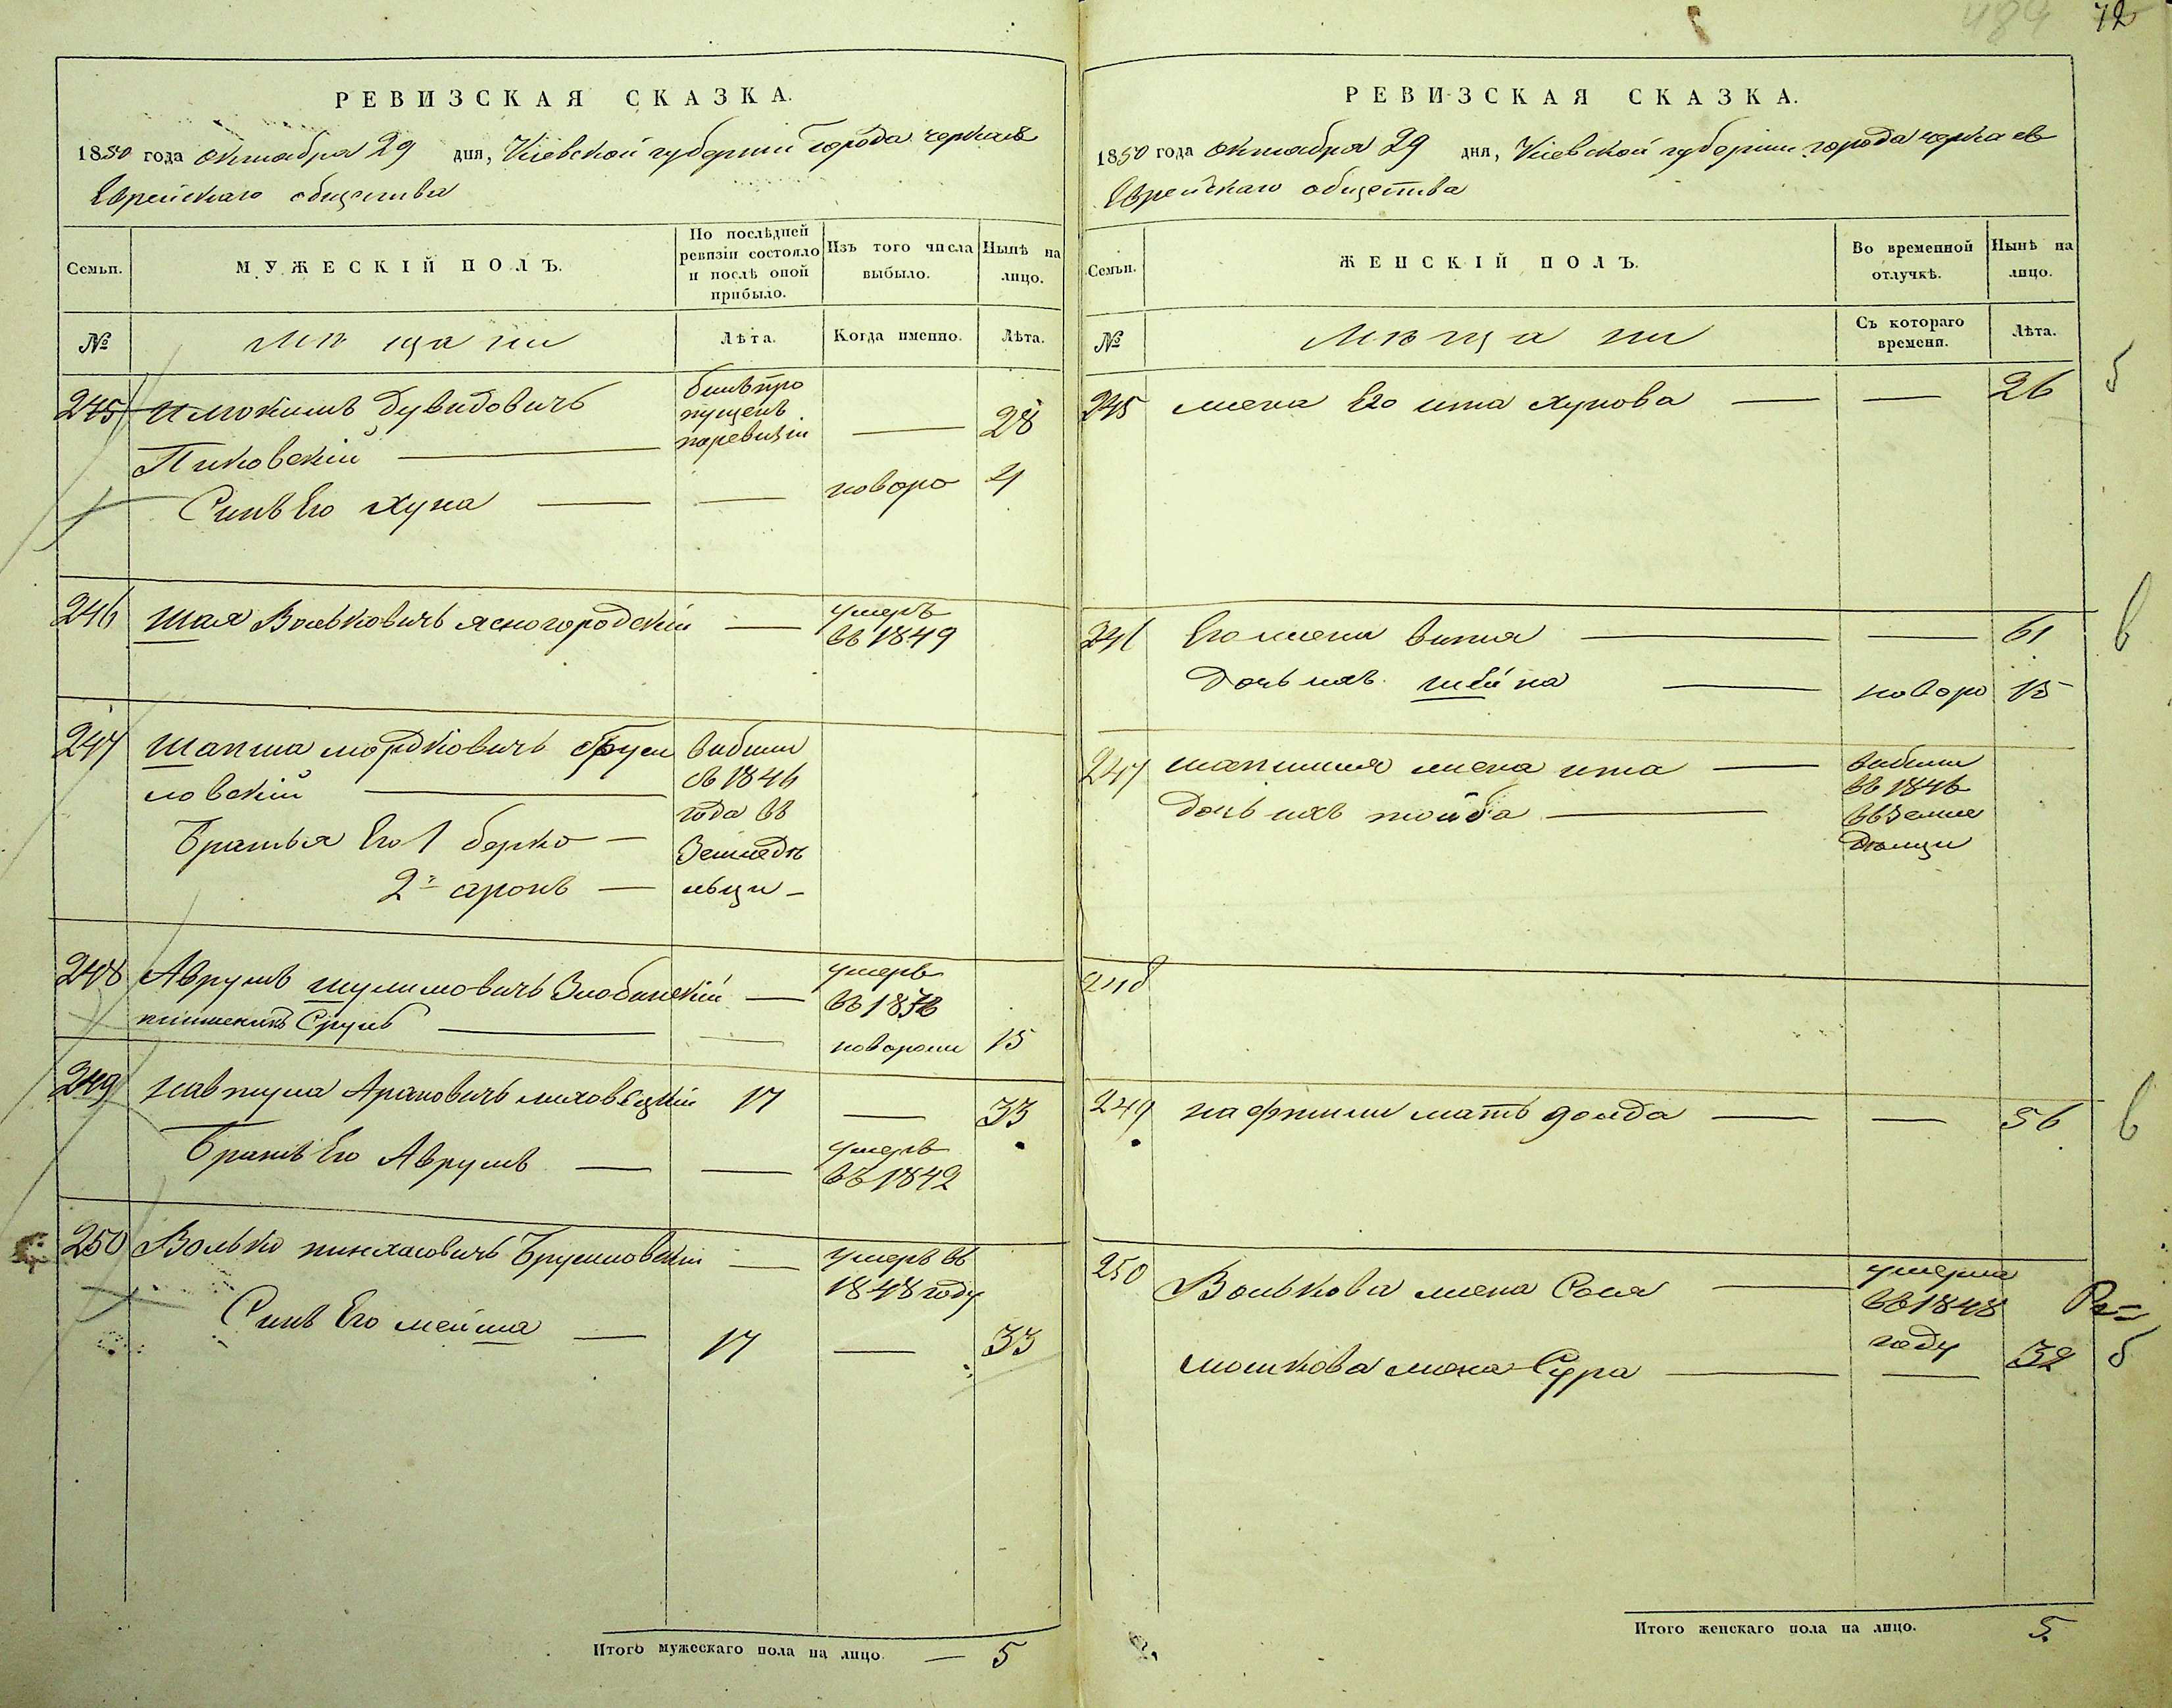 РЕВИЗСКАЯ СКАЗКА.
1850 года октября 29 дня, Кіевской губерніи города черкасъ
Еврейскаго общества
Семьи.
МУЖЕСКІЙ ПОЛЪ.
По послѣдней ревизіи состояло и послѣ оной прибыло.
Изъ того числа выбыло.
Нынѣ на лицо.
№
Мѣщани
Лѣта.
Когда именно.
Лѣта.
245 Дувидовичь былъ пропущенъ 28
Пиковскій
Синъ Его Хуна — — новоро 4
246 Шая Вольковичь Ясногородскій — умеръ въ 1849
247 Шапша мордковичь вибили
ловскій въ 1846
года въ
Братья Его 1 берко — Земледѣ
2й аронъ — льци —
248 Аврумъ шулимовичь — умеръ
Срулъ — новорож 15
249 Навтула Арановичь 17 — 33
Братъ Его Аврумъ — — умеръ въ 1842
250 Волько пинхасовичь Брусиловскій — умеръ въ 1848 году
Синъ Его мейша — 17 — 33
Итого мужескаго пола на лицо — 5
72
РЕВИЗСКАЯ СКАЗКА.
1850 года октября 29 дня, Кіевской губерніи города черкасъ
Еврейскаго общества
Семьи.
ЖЕНСКІЙ ПОЛЪ.
Во временной отлучкѣ.
Нынѣ на лицо.
№
Мѣщани
Съ котораго времени.
Лѣта.
245 жена Его ита хунова — — 26
246 Его жена — — 61
дочь ихъ шейна — новоро 15
247 шапшина жена ита — вибили
въ 1846
дочь ихъ тойба — въ Земле
дѣльци
248
249 нафтули мать — — 56
250 Волькова жена Сося — умерла
въ 1848
году
мошкова жена Сура — — 32
Итого женскаго пола на лицо. 5.